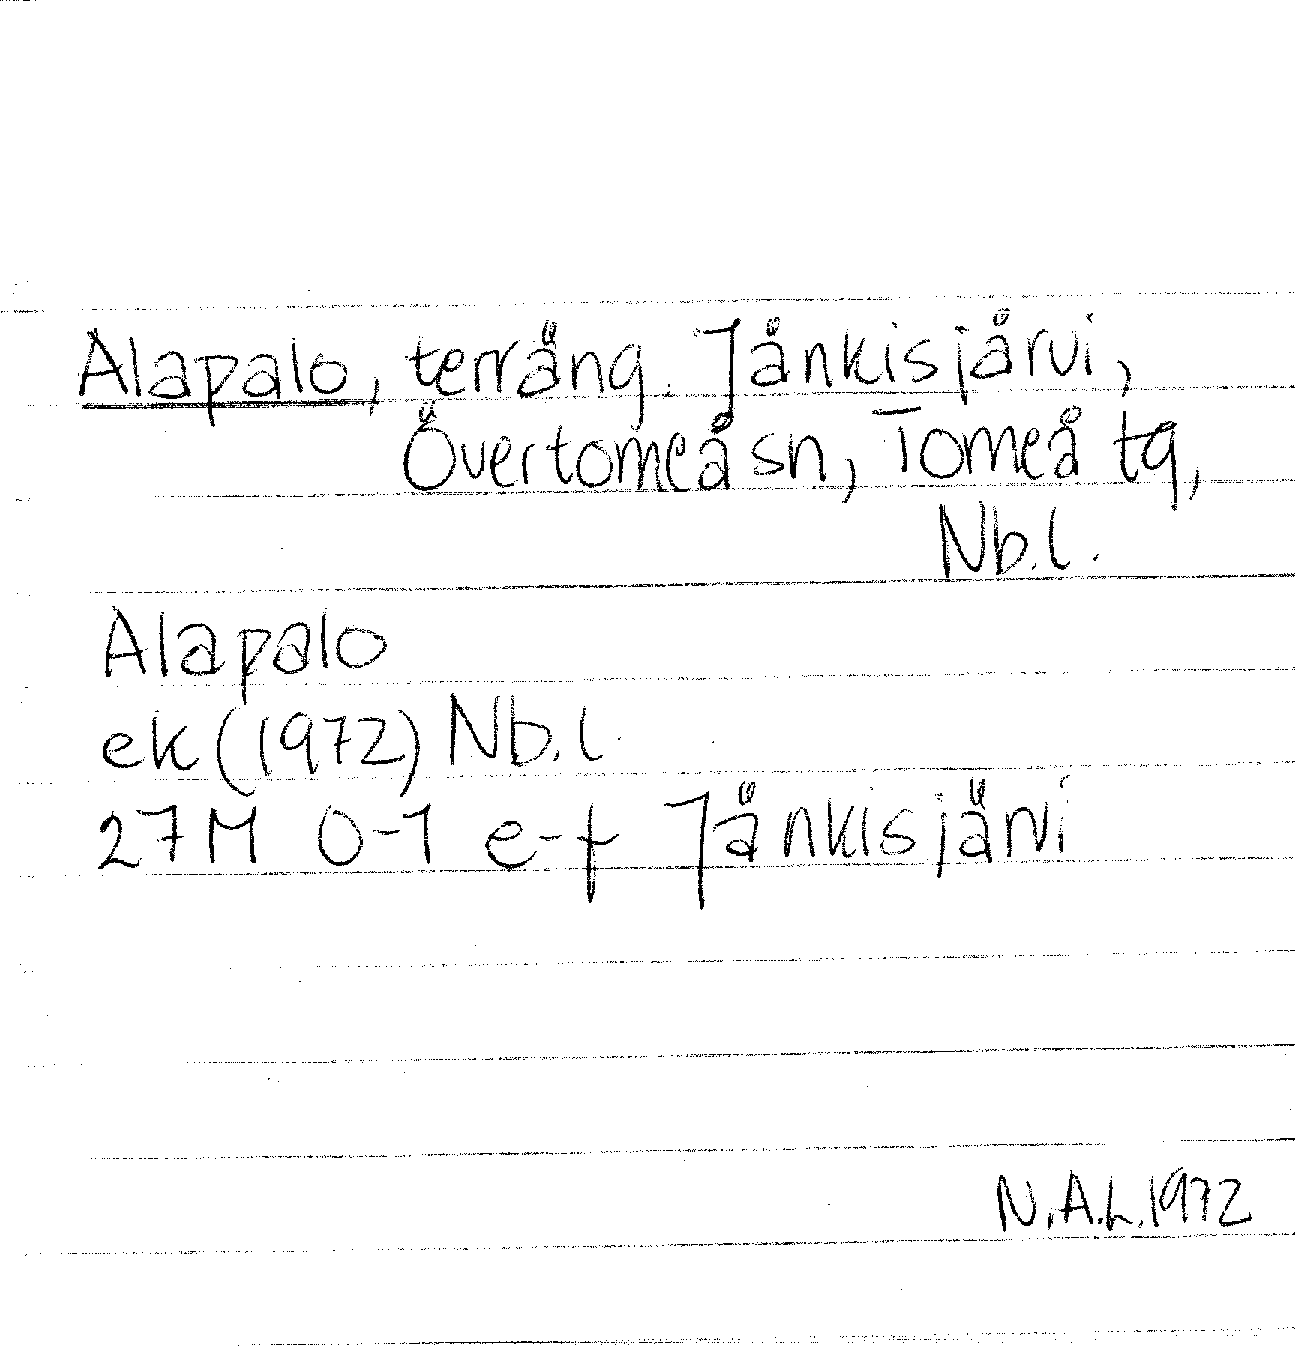 Alapalo, terräng. Jänkisjärvi,
Övertorneå sn, Torneå tg,
Nb.l.
Alapalo
ek (1972) Nb.l.
27M 0-1 e-f Jänkisjärvi
N.A.L. 1972